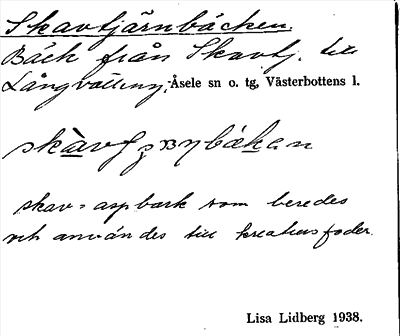 Skavtjärnbäcken.
Bäck från Skavtj. till
Långvattnet, Åsele sn o. tg, Västerbottens l.
skav = aspbark som beredes
och användes till kreatursfoder.
Lisa Lidberg 1938.